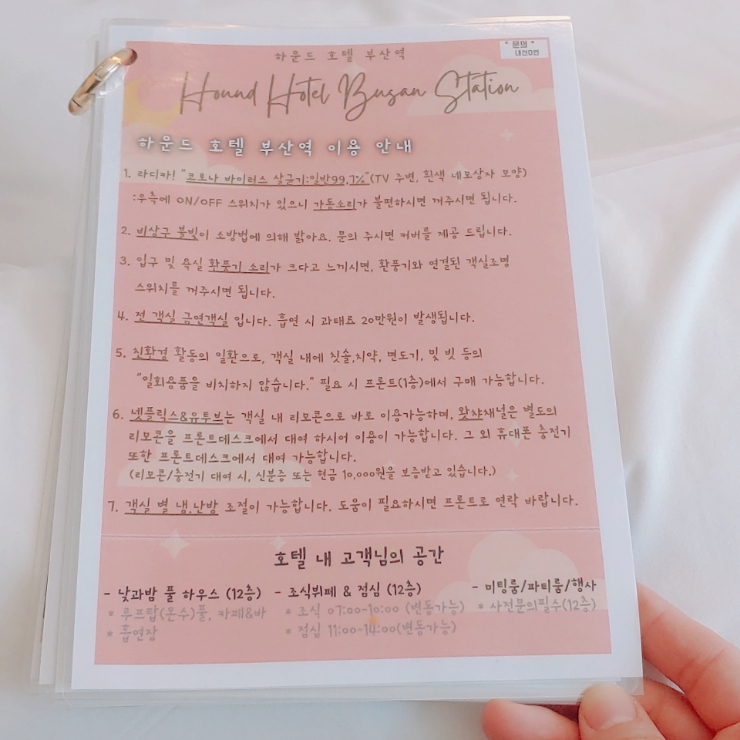 하운드 호텔 부산역
* 문의 *
내선0번
Hound Hotel Busan Station
하운드 호텔 부산역 이용 안내
1. 라디카! "코로나 바이러스 살균기:일반99,7%"(TV 주변, 흰색 네모상자 모양)
:우측에 ON/OFF 스위치가 있으니 가동소리가 불편하시면 꺼주시면 됩니다.
2. 비상구 불빛이 소방법에 의해 밝아요. 문의 주시면 커버를 제공 드립니다.
3. 입구 및 욕실 환풍기 소리가 크다고 느끼시면, 환풍기와 연결된 객실조명
스위치를 꺼주시면 됩니다.
4. 전 객실 금연객실 입니다. 흡연 시 과태료 20만원이 발생됩니다.
5. 친환경 활동의 일환으로, 객실 내에 칫솔,치약, 면도기, 및 빗 등의
"일회용품을 비치하지 않습니다." 필요 시 프론트(1층)에서 구매 가능합니다.
6. 넷플릭스&유투브는 객실 내 리모콘으로 바로 이용가능하며, 왓챠채널은 별도의
리모콘을 프론트데스크에서 대여 하시어 이용이 가능합니다. 그 외 휴대폰 충전기
또한 프론트데스크에서 대여 가능합니다.
(리모콘/충전기 대여 시, 신분증 또는 현금 10,000원을 보증받고 있습니다.)
7. 객실 별 냉,난방 조절이 가능합니다. 도움이 필요하시면 프론트로 연락 바랍니다.
호텔 내 고객님의 공간
- 낮과밤 풀 하우스 (12층) - 조식뷔페 & 점심 (12층) - 미팅룸/파티룸/행사
* 루프탑(온수)풀, 카페&바 * 조식 07:00-10:00 (변동가능) * 사전문의필수(12층)
* 흡연장 * 점심 11:00-14:00(변동가능)